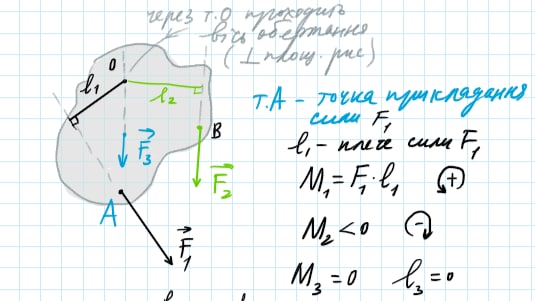 через т.О проходить
вісь обертання
(⊥ площ. рис)
O
l₁
l₂
B
F⃗₃
F⃗₂
A
F⃗₁
т.А - точка прикладання
сили F₁
l₁ - плече сили F₁
M₁ = F₁ · l₁ (+)
M₂ < 0 (-)
M₃ = 0 l₃ = 0